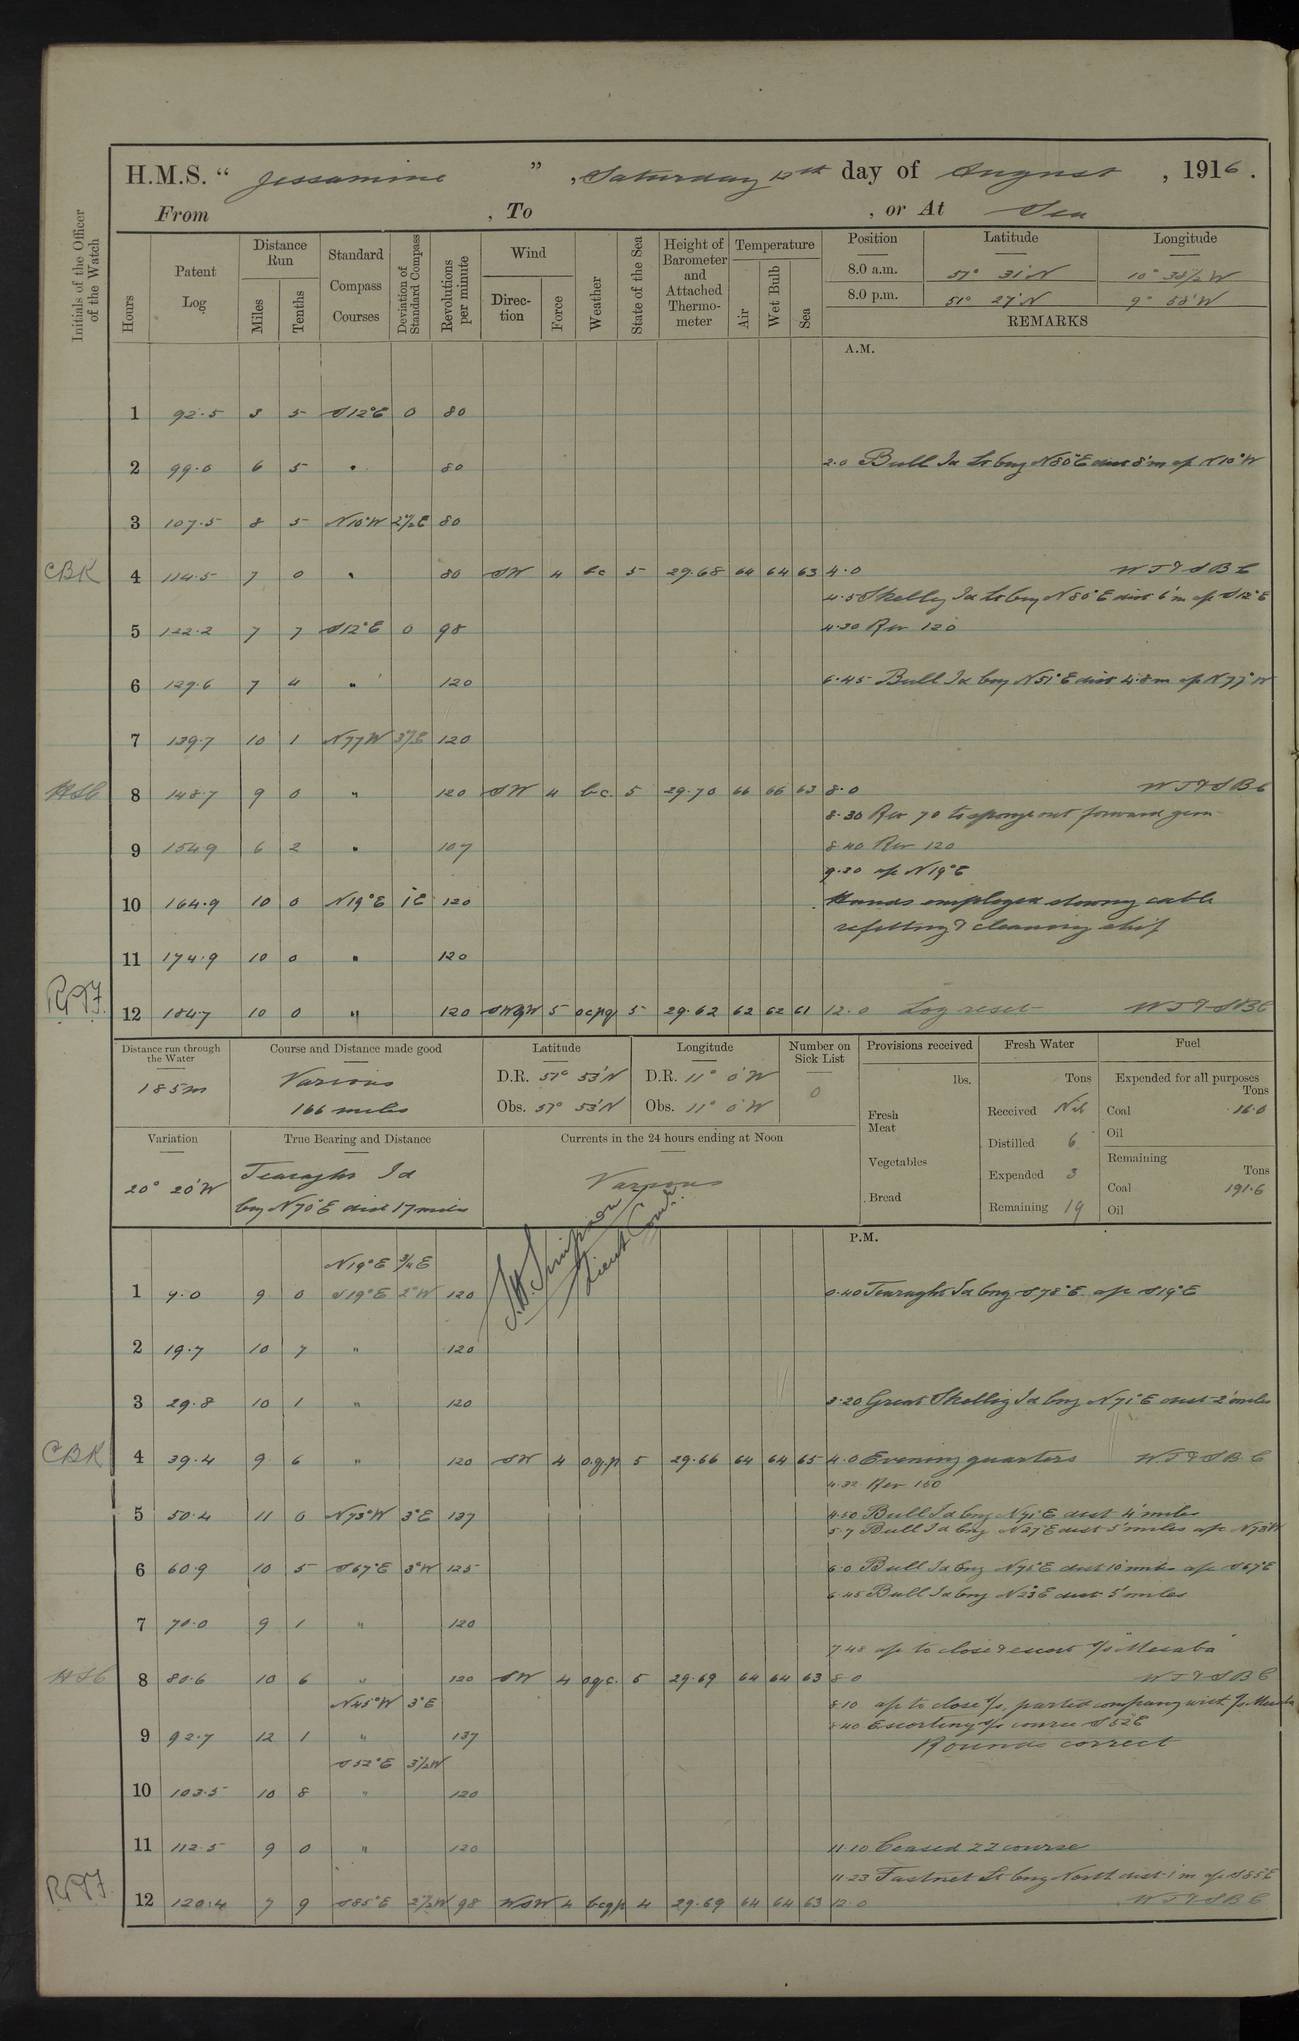 H.M.S. "Jessamine", Saturday 12th day of August, 1916.
From , To , or At Sea
Initials of the Officer of the Watch
Hours
Patent Log
Distance Run
Miles
Tenths
Standard Compass Courses
Deviation of Standard Compass
Revolutions per minute
Wind
Direction
Force
Weather
State of the Sea
Height of Barometer and Attached Thermometer
Temperature
Air
Wet Bulb
Sea
Position Latitude Longitude
8.0 a.m. 51° 31'N 10° 38½'W
8.0 p.m. 51° 27'N 9° 58'W
REMARKS
A.M.
1 92.5 3 5 S12°E 0 80
2 99.0 6 5 " 80 2.0 Bull Id Lt brg N80°E dist 8'm a/c N10°W
3 107.5 8 5 N10°W 2½E 80
CBK 4 114.5 7 0 " 80 SW 4 bc 5 29.68 64 64 63 4.0 WT&SBC
4.5 Skellig Id Lt brg N80°E dist 6'm a/c S12°E
5 122.2 7 7 S12°E 0 98 4.30 Rev 120
6 129.6 7 4 " 120 6.45 Bull Id brg N51°E dist 4.8m a/c N77°W
7 139.7 10 1 N77W 3°E 120
HSC 8 148.7 9 0 " 120 SW 4 b.c. 5 29.70 66 66 63 8.0 WT&SBC
8.30 Rev 70 to sponge out forward gun
9 154.9 6 2 " 107 8.40 Rev 120
9.30 a/c N19°E
10 164.9 10 0 N19°E 1°E 120 Hands employed stowing cable
refitting & cleaning ship
11 174.9 10 0 " 120
12 184.7 10 0 " 120 SWbyW 5 ocpq 5 29.62 62 62 61 12.0 Log reset WT&SBC
Distance run through the Water
185m
Course and Distance made good
Various
166 miles
Latitude
D.R. 51° 53'N
Obs. 51° 53'N
Longitude
D.R. 11° 0'W
Obs. 11° 0'W
Number on Sick List
0
Provisions received
lbs.
Fresh Meat
Vegetables
Bread
Fresh Water
Tons
Received Nil
Distilled 6
Expended 3
Remaining 19
Fuel
Expended for all purposes
Tons
Coal 16.0
Oil
Remaining
Tons
Coal 191.6
Oil
Variation
20° 20'W
True Bearing and Distance
Tearaght Id
brg N70°E dist 17 miles
Currents in the 24 hours ending at Noon
Various
Simpson
Lieut Com.
P.M.
N19°E ¾E
1 9.0 9 0 S19°E 2°W 120 0.40 Tearaght Id brg S78°E a/c S19°E
2 19.7 10 7 " 120
3 29.8 10 1 " 120 3.20 Great Skellig Id brg N71°E dist 2 miles
CBK 4 39.4 9 6 " 120 SW 4 o.q.p 5 29.66 64 64 65 4.0 Evening quarters WT&SBC
4.32 Rev 150
5 50.4 11 0 N73°W 3°E 137 4.50 Bull Id brg N71°E dist 4 miles
5.7 Bull Id brg N27°E dist 5 miles a/c N73°W
6 60.9 10 5 S67°E 3°W 125 6.0 Bull Id brg N75°E dist 10 miles a/c S67°E
6.45 Bull Id brg N23°E dist 5 miles
7 70.0 9 1 " 120
7.48 a/c to close & escort S/S "Mesaba"
HSC 8 80.6 10 6 " 120 SW 4 oqc. 5 29.69 64 64 63 8.0 WT&SBC
N45°W 3°E
8.10 a/c to close S/S, parted company with S/S Mesaba
9 92.7 12 1 " 137 8.40 Escorting S/S course S52E
Rounds correct
S52°E 3½W
10 103.5 10 8 " 120
11 112.5 9 0 " 120 11.10 Ceased ZZ course
11.23 Fastnet Lt brg North dist 1m a/c S85E
12 120.4 7 9 S85°E 2½W 98 WSW 4 bcqp 4 29.69 64 64 63 12.0 WT&SBC